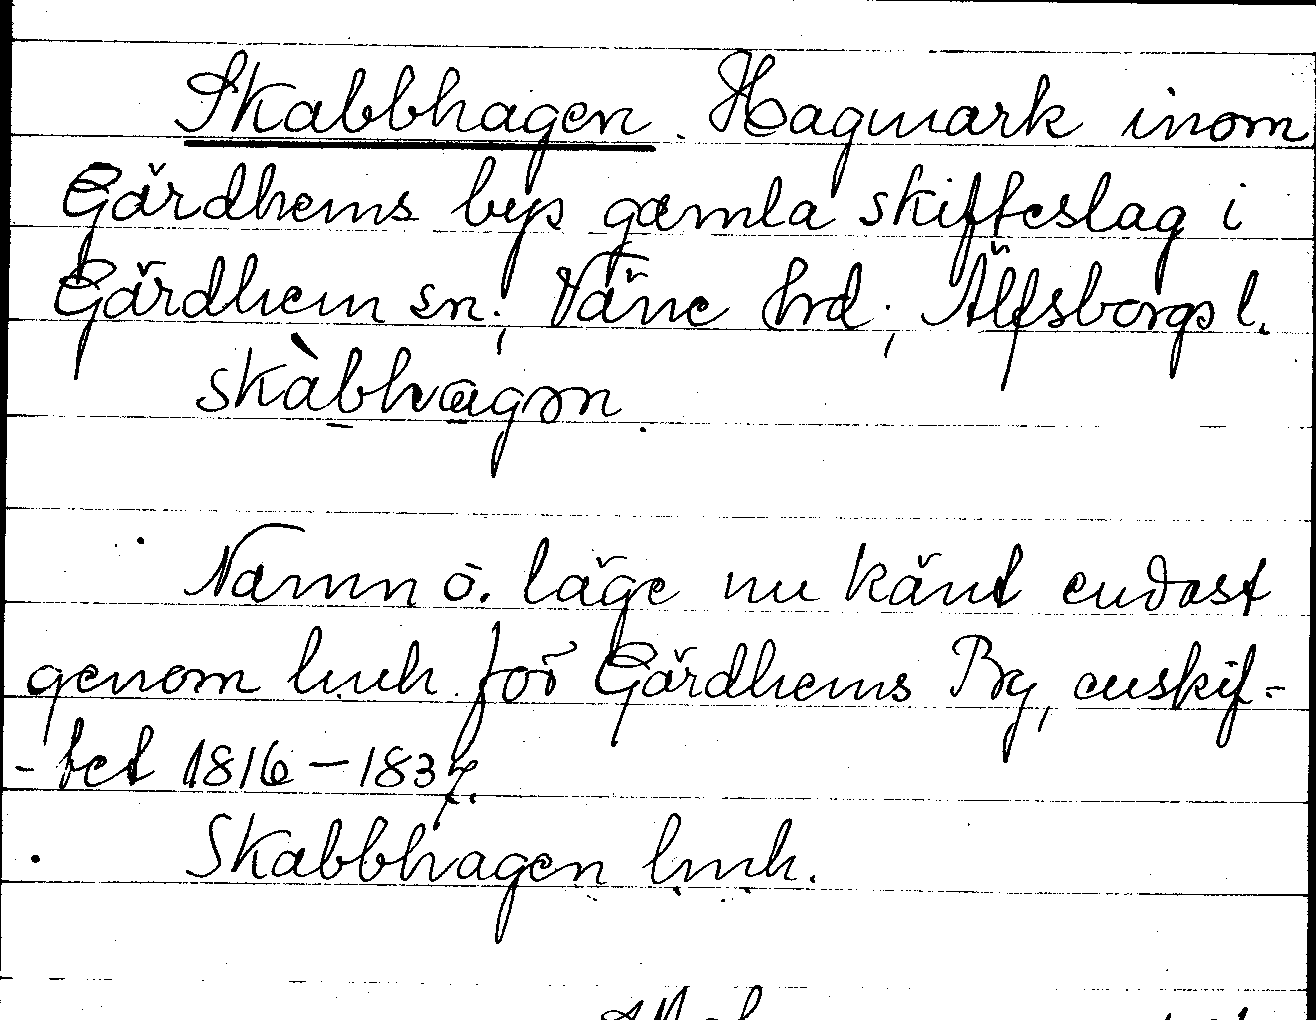 Skabbhagen. Hagmark inom
Gärdhems bys gamla skifteslag i
Gärdhem sn; Väne hrd; Älfsborgs l.
skàbhagən.
Namn o. läge nu känd endast
genom lmh. för Gärdhems By, enskif-
-tet 1816–1837.
Skabbhagen lmh.